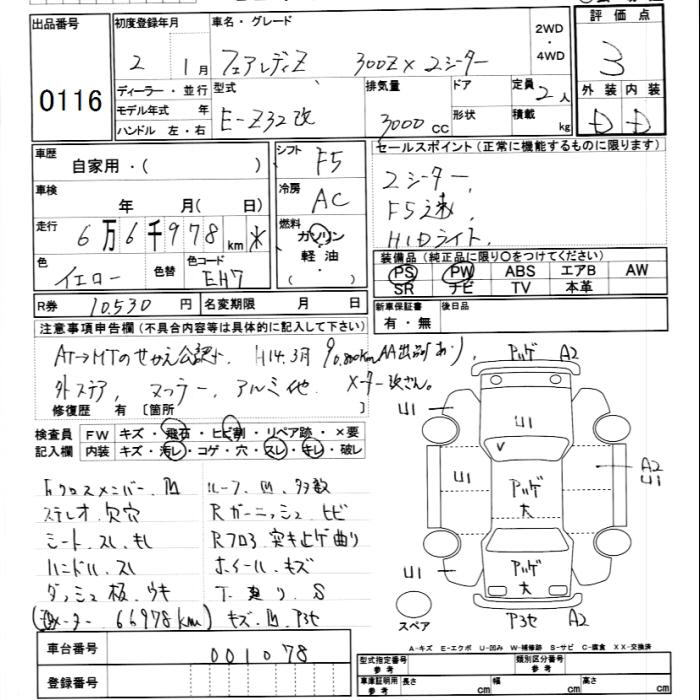 出品番号 0116
初度登録年月 2 1月
車名・グレード フェアレディZ 300ZX 2シーター
2WD・4WD
評価点 3
外装 D 内装 D
ディーラー・並行
モデル年式 年
ハンドル 左・右
型式 E-Z32改
排気量 3000cc
ドア形状
定員 2人
積載 kg
車歴 自家用・( )
シフト F5
車検 年 月( 日)
冷房 AC
走行 6万6千978km ※
燃料 ガソリン・軽油・( )
色 イエロー 色替
色コード EH7
R券 10.530円
名変期限 月 日
セールスポイント(正常に機能するものに限ります)
2シーター,
F5速,
HIDライト,
装備品(純正品に限り○をつけてください)
PS PW ABS エアB AW
SR ナビ TV 本革
新車保証書 有・無
後日品
注意事項申告欄(不具合内容等は具体的に記入して下さい)
AT→MTのせかえ公認, H14.3月 90,800km AA出品(あり),
外ステア, マフラー, アルミ他 メーター改ざん。
修復歴 有 〔箇所 〕
検査員記入欄
FW キズ・飛石・ヒビ割・リペア跡・×要
内装 キズ・汚レ・コゲ・穴・スレ・キレ・破レ
Fクロスメンバー.凹 ルーフ.凹.多数
ステレオ.欠穴 Rガーニッシュ.ヒビ
シート.スレ.キレ Rフロア 突き上げ曲り
ハンドル.スレ ホイール.キズ
ダッシュ板.ウキ 下.廻り.S
メーター.66978km) キズ.凹.アヲセ
アリゲ A2
U1
U1
V
U1
アリゲ 大
A2
U1
U1
アリゲ 大
アヲセ A2
スペア
A-キズ E-エクボ U-凹み W-補修跡 S-サビ C-腐食 XX-交換済
車台番号 001078
登録番号
型式指定番号 参考
類別区分番号 参考
車庫証明用 参考 長さ cm 幅 cm 高さ cm